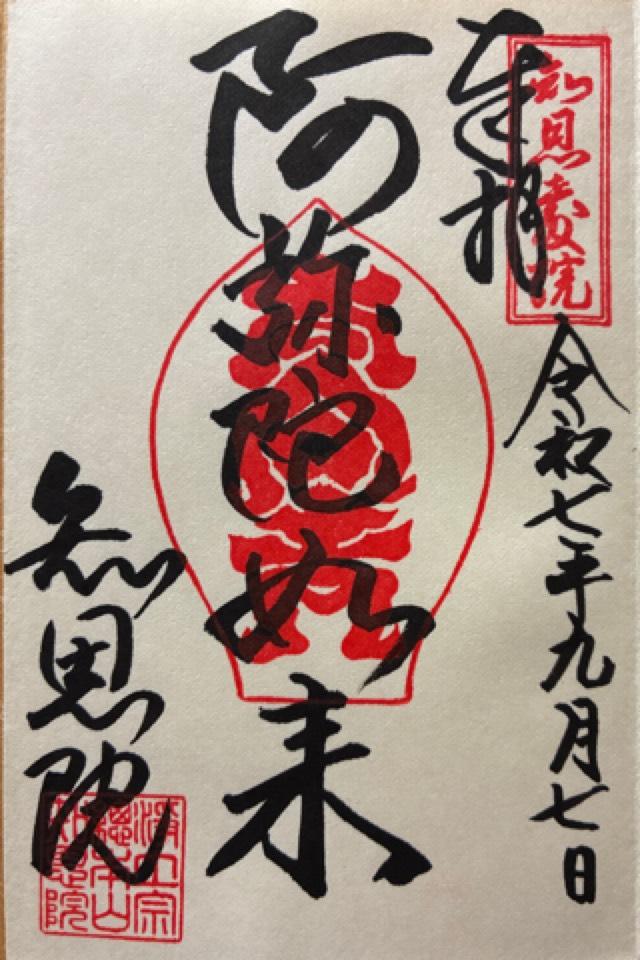 奉拝
知恩教院
令和七年九月七日
阿弥陀如来
知恩院
浄土宗
總本山
知恩院